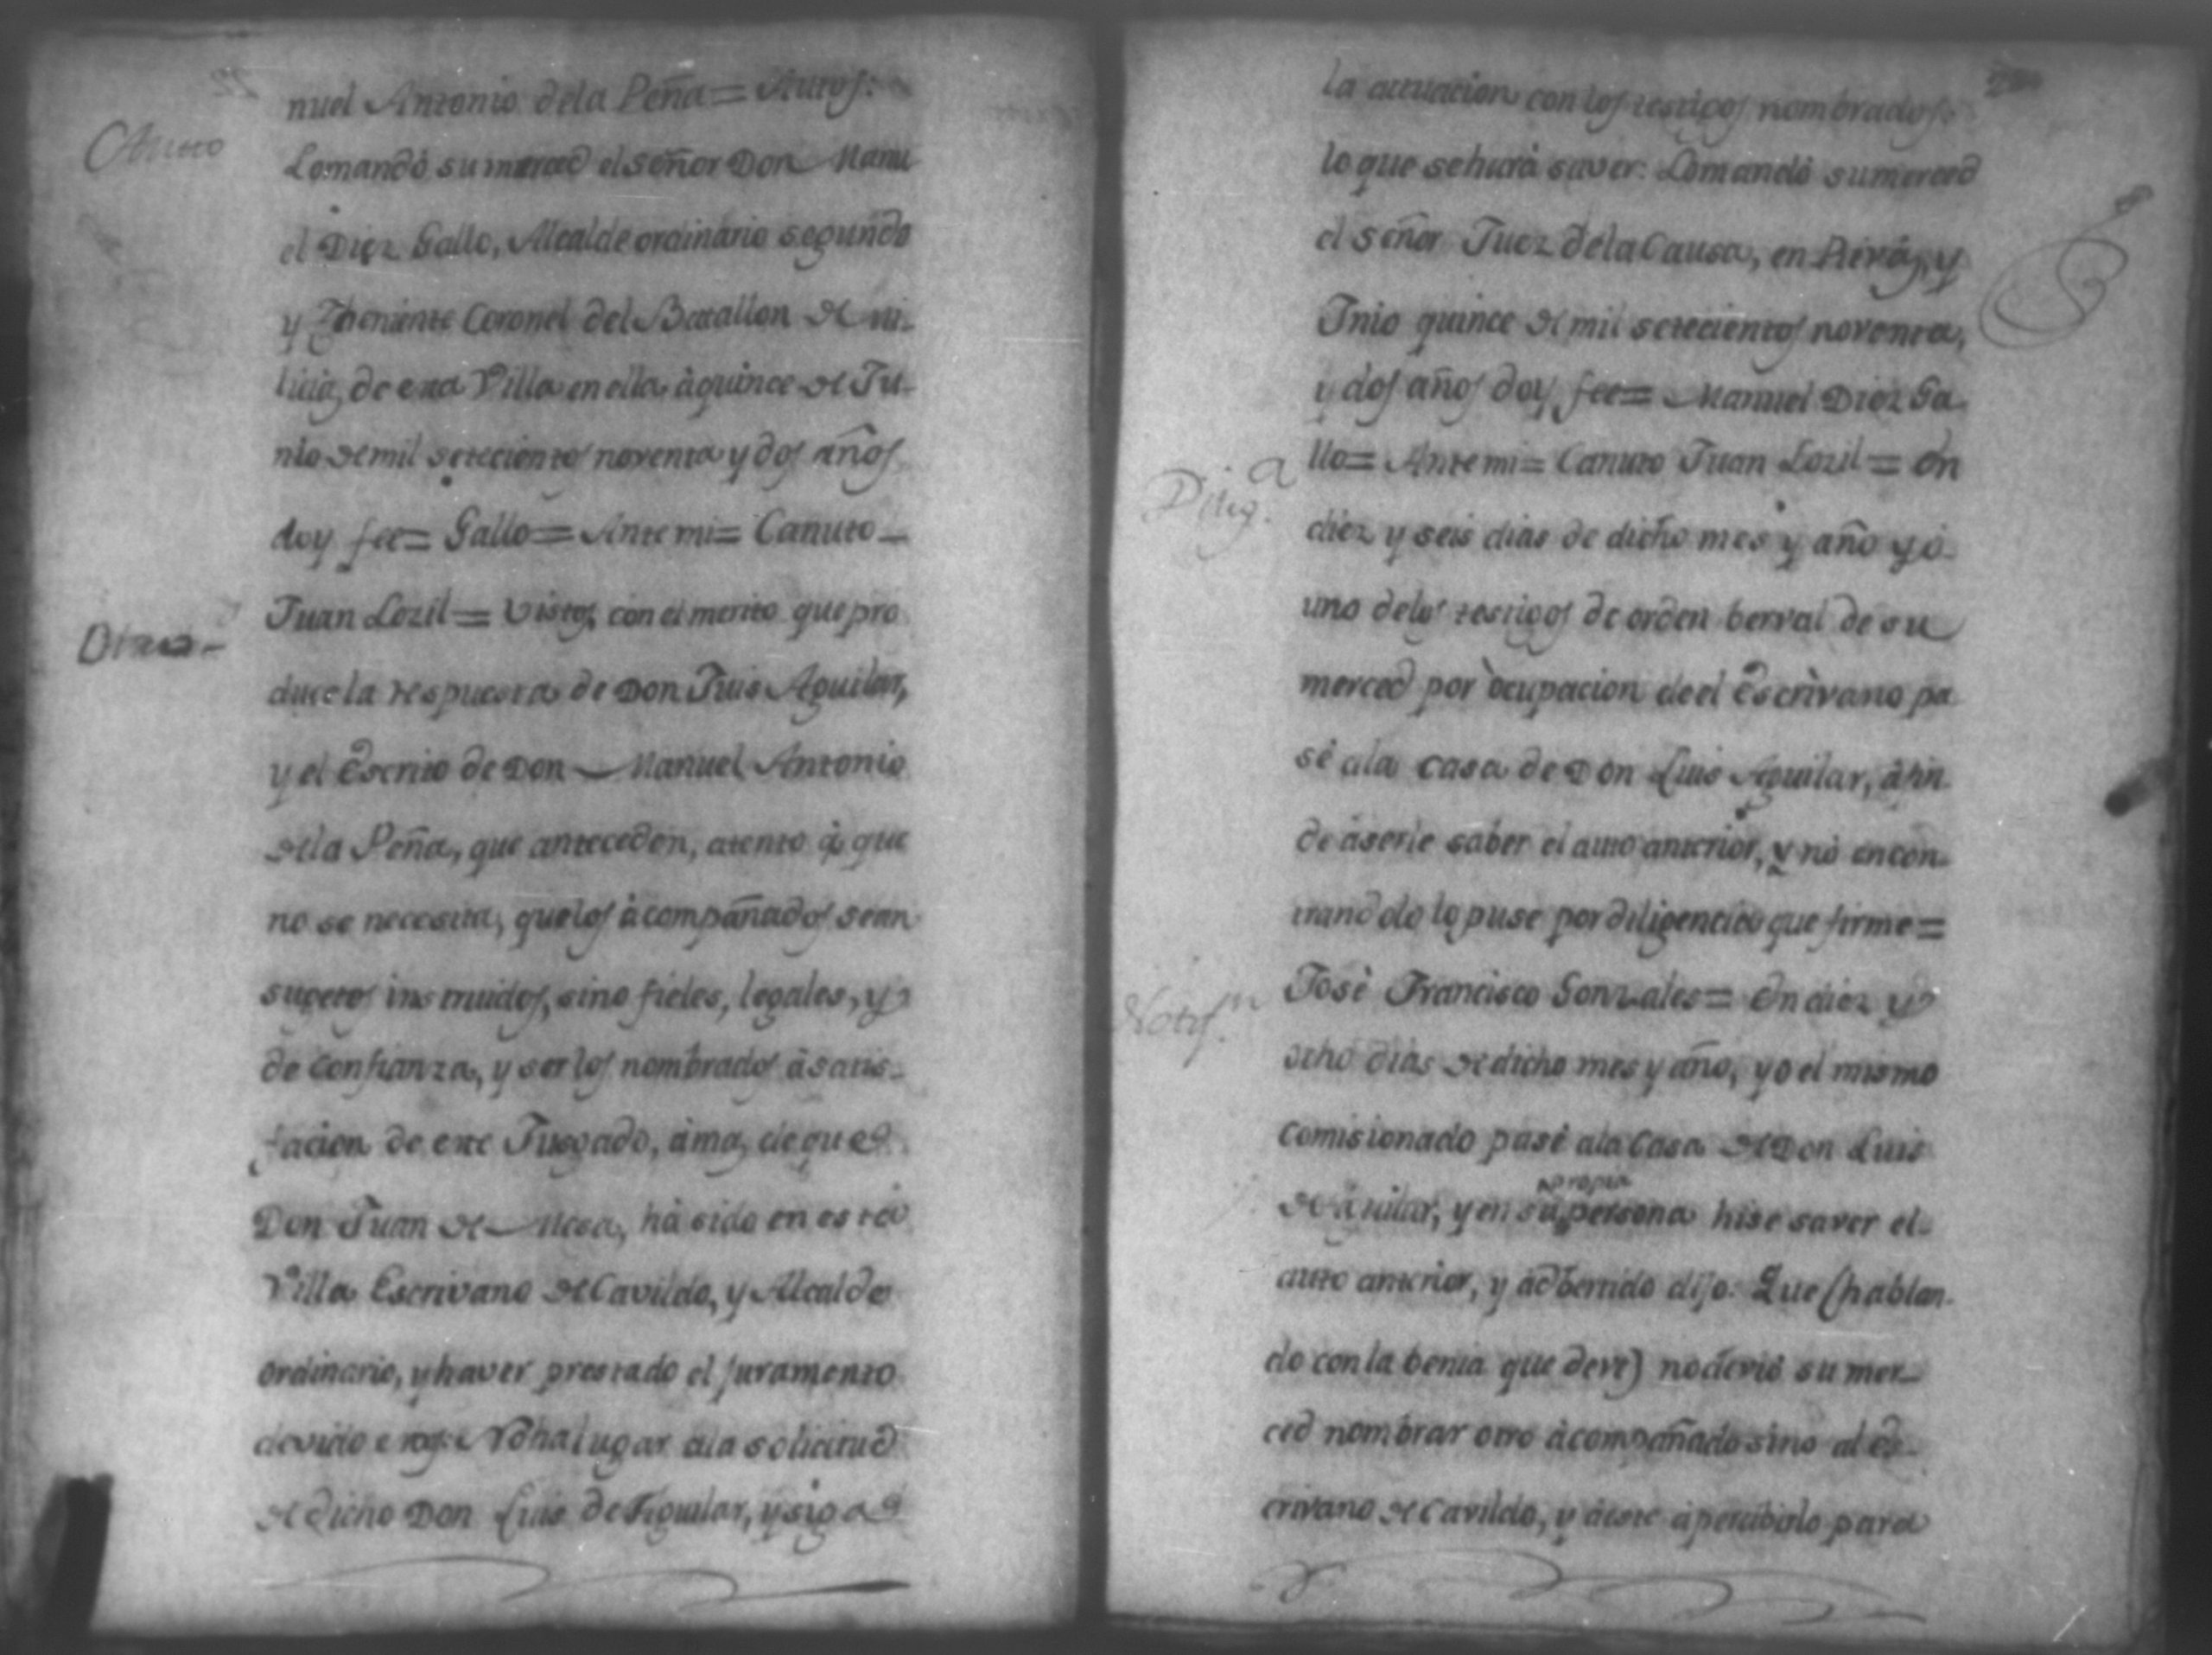 nuel Antonio dela Peña = Autos:
Auto
Lomandò su merced el señor Don Manu
el Diez Gallo, Alcalde ordinario segundo
y Theniente Coronel del Batallon de mi-
licias de esta Villa en ella à quince de Ju-
nio de mil setecientos noventa y dos años
doy fee = Gallo = Ante mi = Canuto
Otro
Juan Lozil = Vistos, con el merito que pro
duce la respuesta de Don Luis Aguilar,
y el Escrito de Don Manuel Antonio
dela Peña, que anteceden, atento à que
no se necesita, que los àcompañados sean
sugetos instruidos, sino fieles, legales, y
de confianza, y ser los nombrados à satis-
facion de este Jusgado, àmas de que
Don Juan de Mesa, hà sido en esta
Villa Escrivano de Cavildo, y Alcalde
ordinario, y haver prestado el juramento
devido No ha lugar ala solicitud
de dicho Don Luis de Aguilar, y siga
la actuacion con los testigos nombrados:
lo que se hará saver: Lomandò su merced
el señor Juez dela Causa, en y
Junio quince de mil setecientos noventa,
y dos años doy fee = Manuel Diez Ga
Dilig.a
llo = Ante mi = Canuto Juan Lozil = En
diez y seis dias de dicho mes y año yò
uno delos testigos de orden berval de su
merced por òcupacion de el Escrivano pa
sè ala casa de Don Luis Aguilar, àfin
de àserle saber el auto anterior, y nò encon-
trandolo lo puse por diligencia que firme =
Notif.n
Josè Francisco Gonzales = En diez y
ocho dias de dicho mes y año, yo el mismo
comisionado pasè ala Casa de Don Luis
propia
de Aguilar, y en su persona hise saver el
auto anterior, y adbertido dijo: Que (hablan-
do con la benia que deve) no deviò su mer-
ced nombrar otro àcompañado sino al Es-
crivano de Cavildo, y àeste àpercibirlo para